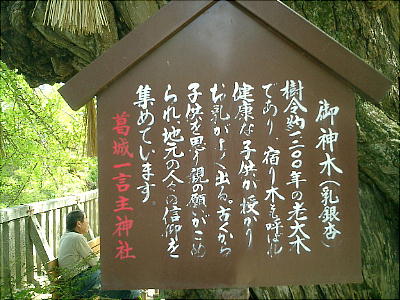 御神木(乳銀杏)
樹令約一二〇〇年の老大木
であり、宿り木も呼ばれ
健康な子供が授かり
お乳がよく出る。古くから
子供を思う親の願いがこめ
られ、地元の人々の信仰を
集めています。
葛城一言主神社